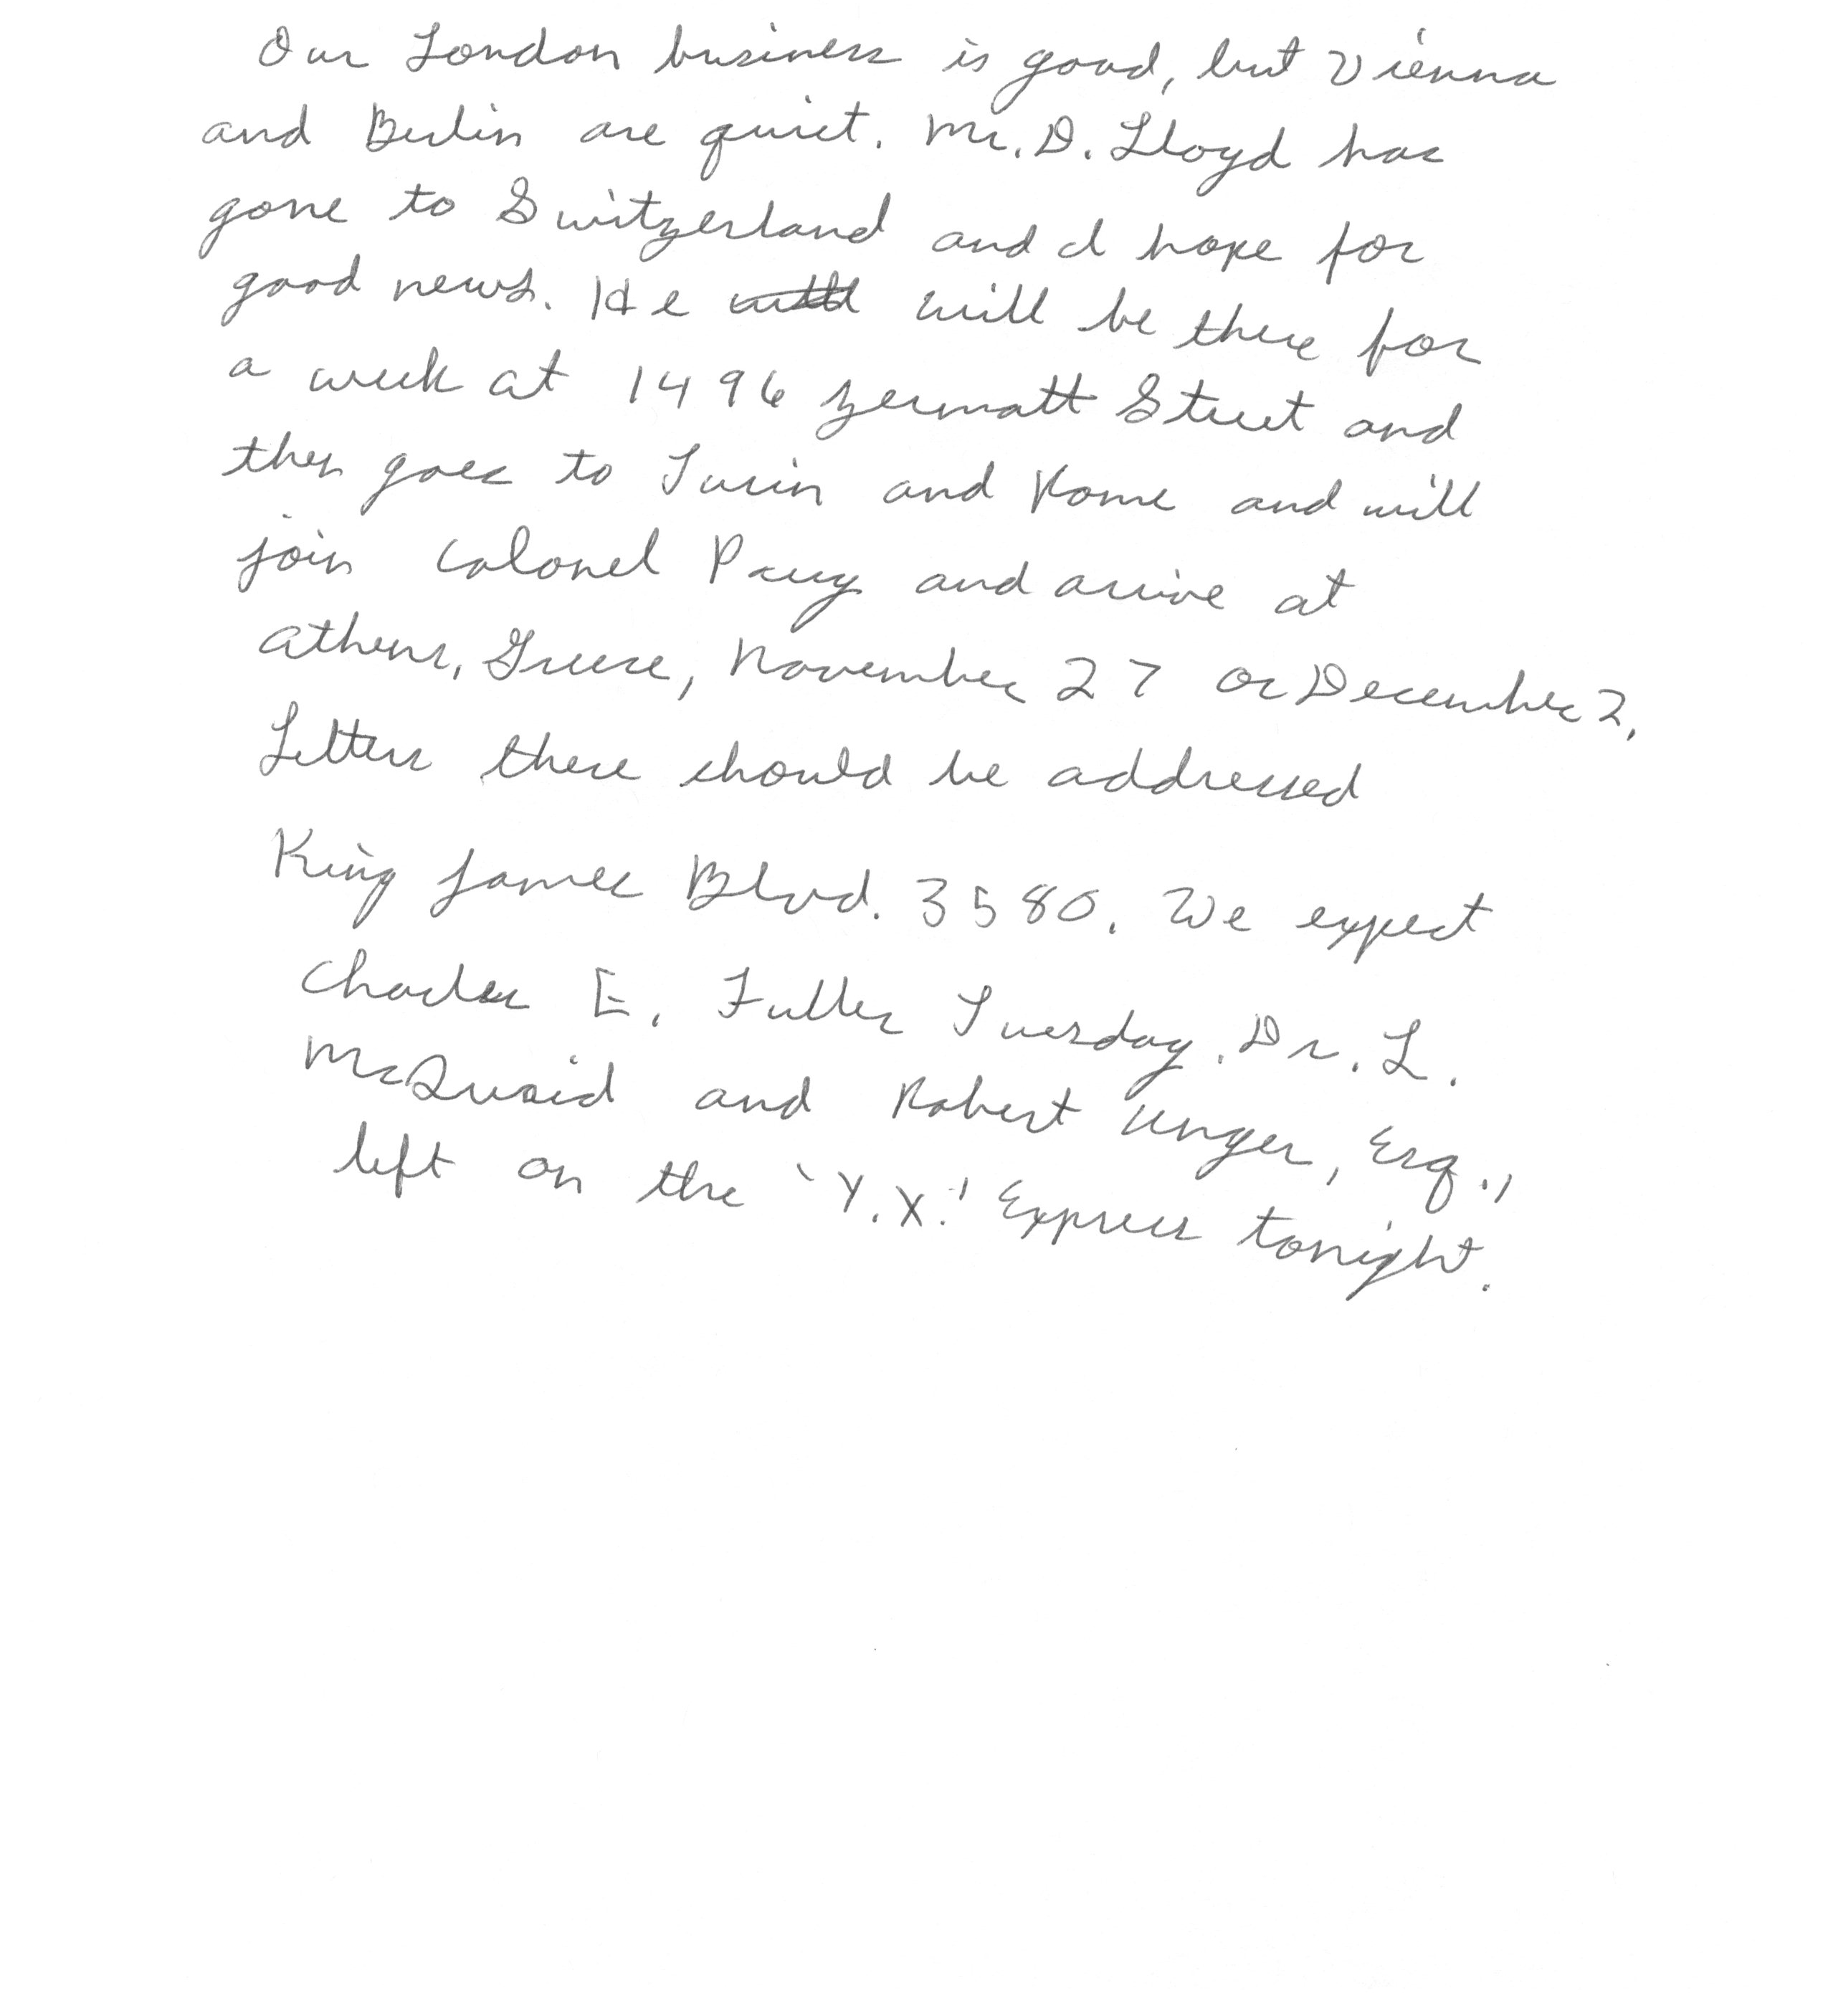 Our London business is good, but Vienna
and Berlin are quiet. Mr. D. Lloyd has
gone to Switzerland and I hope for
good news. He will be there for
a week at 1496 Zermatt Street and
then goes to Turin and Rome and will
join Colonel Parry and arrive at
Athens, Greece, November 27 or December 2.
Letters there should be addressed
King James Blvd. 3580. We expect
Charles E. Fuller Tuesday. Dr. L.
McQuaid and Robert Unger, Esq.,
left on the 'Y.X.' Express tonight.